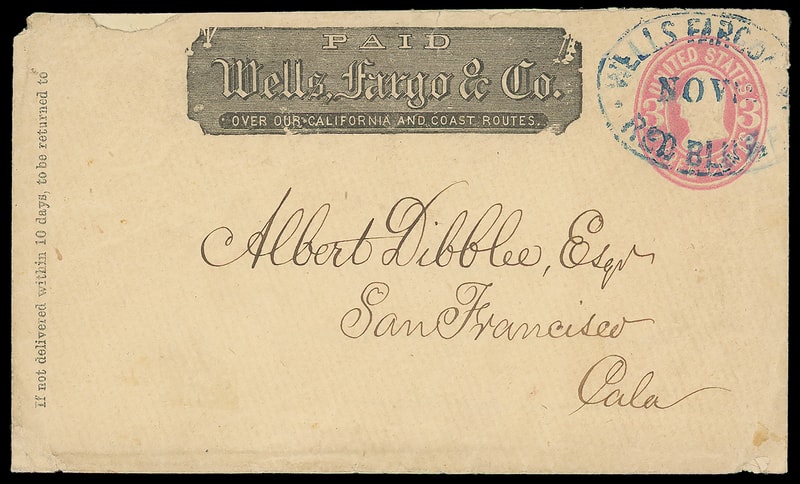 PAID
Wells, Fargo & Co.
OVER OUR CALIFORNIA AND COAST ROUTES.
WELLS FARGO
NOV
RED BLUFF
UNITED STATES
3 3
Albert Dibblee, Esqr
San Francisco
Cala
If not delivered within 10 days, to be returned to